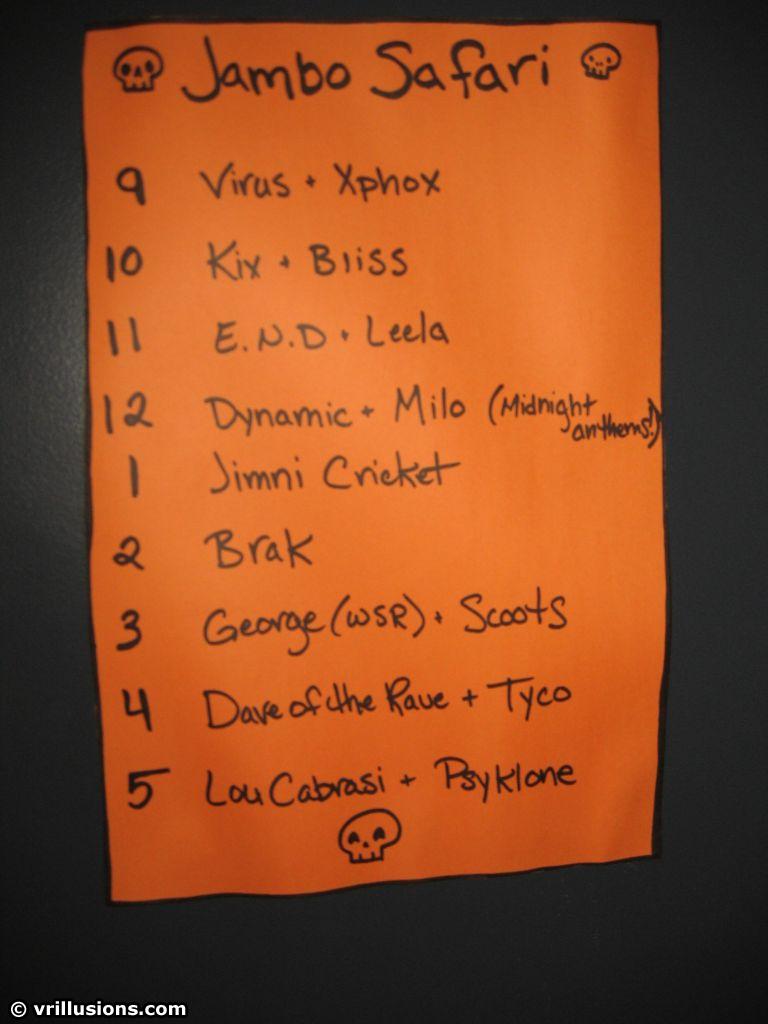 Jambo Safari
9 Virus + Xphox
10 Kix + Bliss
11 E.N.D + Leela
12 Dynamic + Milo (Midnight
anthems!)
1 Jimni Cricket
2 Brak
3 George (WSR) + Scoots
4 Dave of the Rave + Tyco
5 Lou Cabrasi + Psyklone
© vrillusions.com